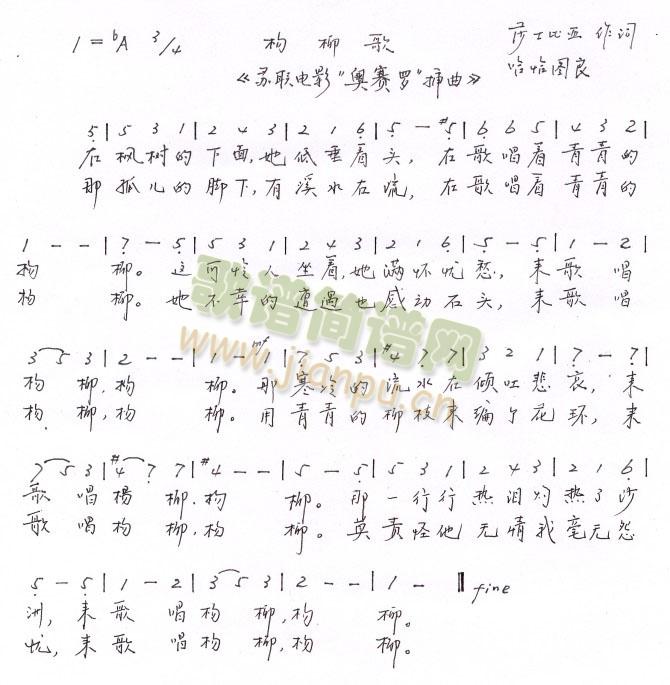 1=ᵇA 3/4 杨柳歌 莎士比亚 作词
《苏联电影"奥赛罗"插曲》 哈恰图良
5̣ | 5 3 1 | 2 4 3 | 2 1 6̣ | 5̣ — #5̣ | 6̣ 6 5 | 4 3 2 |
在枫树的下面,她低垂着头, 在歌唱着青青的
那孤儿的脚下,有溪水在流, 在歌唱着青青的
1 - - | 7̣ - 5̣ | 5 3 1 | 2 4 3 | 2 1 6̣ | 5̣ - 5̣ | 1 - 2 |
杨 柳。 这可怜人坐着,她满怀忧愁, 来歌唱
杨 柳。 她不幸的遭遇也感动石头, 来歌唱
歌谱简谱网
www.jianpu.cn
3 5 3 | 2 - - | 1 - mf 1 | 7̣ 5 3 | #4 7 7 | 3 2 1 | 7̣ - 7̣ |
杨柳,杨 柳。那寒冷的流水在倾吐悲哀, 来
杨柳,杨 柳。用青青的柳枝来编个花环, 来
7 5 3 | #4 7 7 | #4 - - | 5 - 5 | 5 3 1 | 2 4 3 | 2 1 6̣ |
歌唱楊柳,杨 柳。那一行行热泪灼热了沙
歌唱杨柳,杨 柳。莫责怪他无情我毫无怨
5̣ - 5̣ | 1 - 2 | 3 5 3 | 2 - - | 1 - ‖ fine
洲, 来歌唱杨柳,杨 柳。
忧, 来歌唱杨柳,杨 柳。